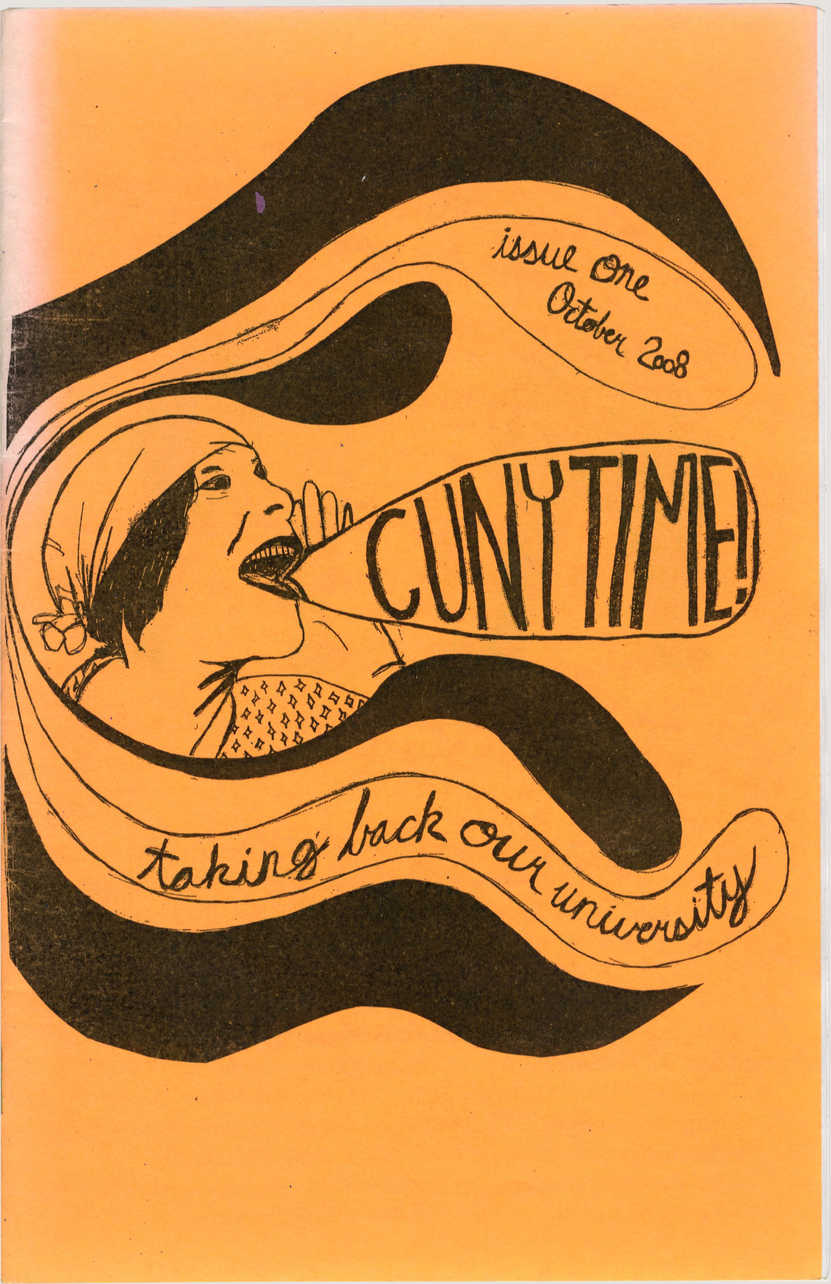 issue One
October 2008
CUNYTIME!
taking back our university